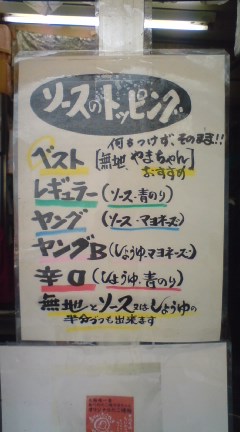 ソースのトッピング
何もつけず、そのまま!!
ベスト[無地、やまちゃん]
おすすめ
レギュラー(ソース・青のり)
ヤング(ソース・マヨネーズ)
ヤングB(しょうゆ・マヨネーズ)
辛口(しょうゆ・青のり)
無地とソース又はしょうゆの
半分づつも出来ます